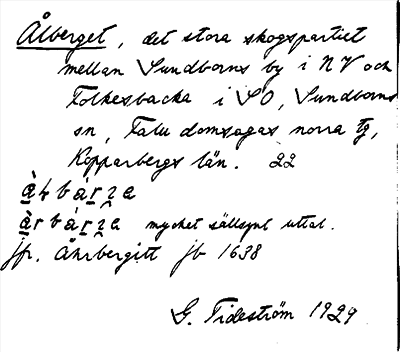 Ålberget, det stora skogspartiet
mellan Sundborns by i NV och
Folkesbacka i SO, Sundborns
sn, Falu domsagas norra tg,
Kopparbergs län. 22
mycket sällsynt uttal.
jfr. Åhrbergitt jb 1638
G. Tideström 1929